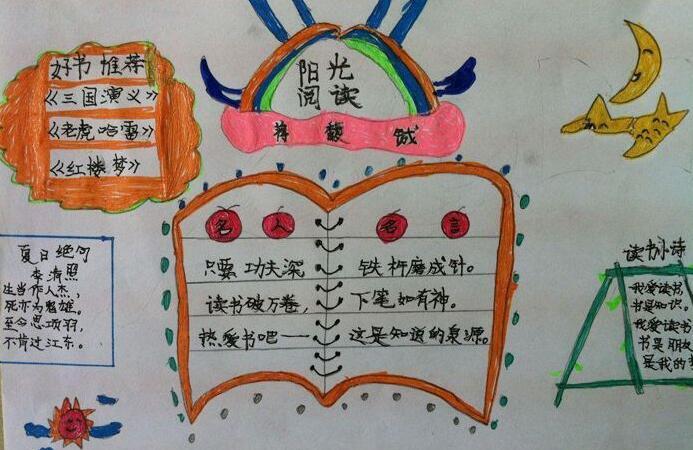 好书推荐
《三国演义》
《老虎哈雷》
《红楼梦》
阳光
阅读
蒋馥
名人 名言
只要功夫深 铁杵磨成针。
读书破万卷, 下笔如有神。
热爱书吧—— 这是知道的泉源。
夏日绝句
李清照
生当作人杰,
死亦为鬼雄。
至今思项羽,
不肯过江东。
读书小诗
我爱读书
书是知识。
我爱读书
书是朋友
是我的